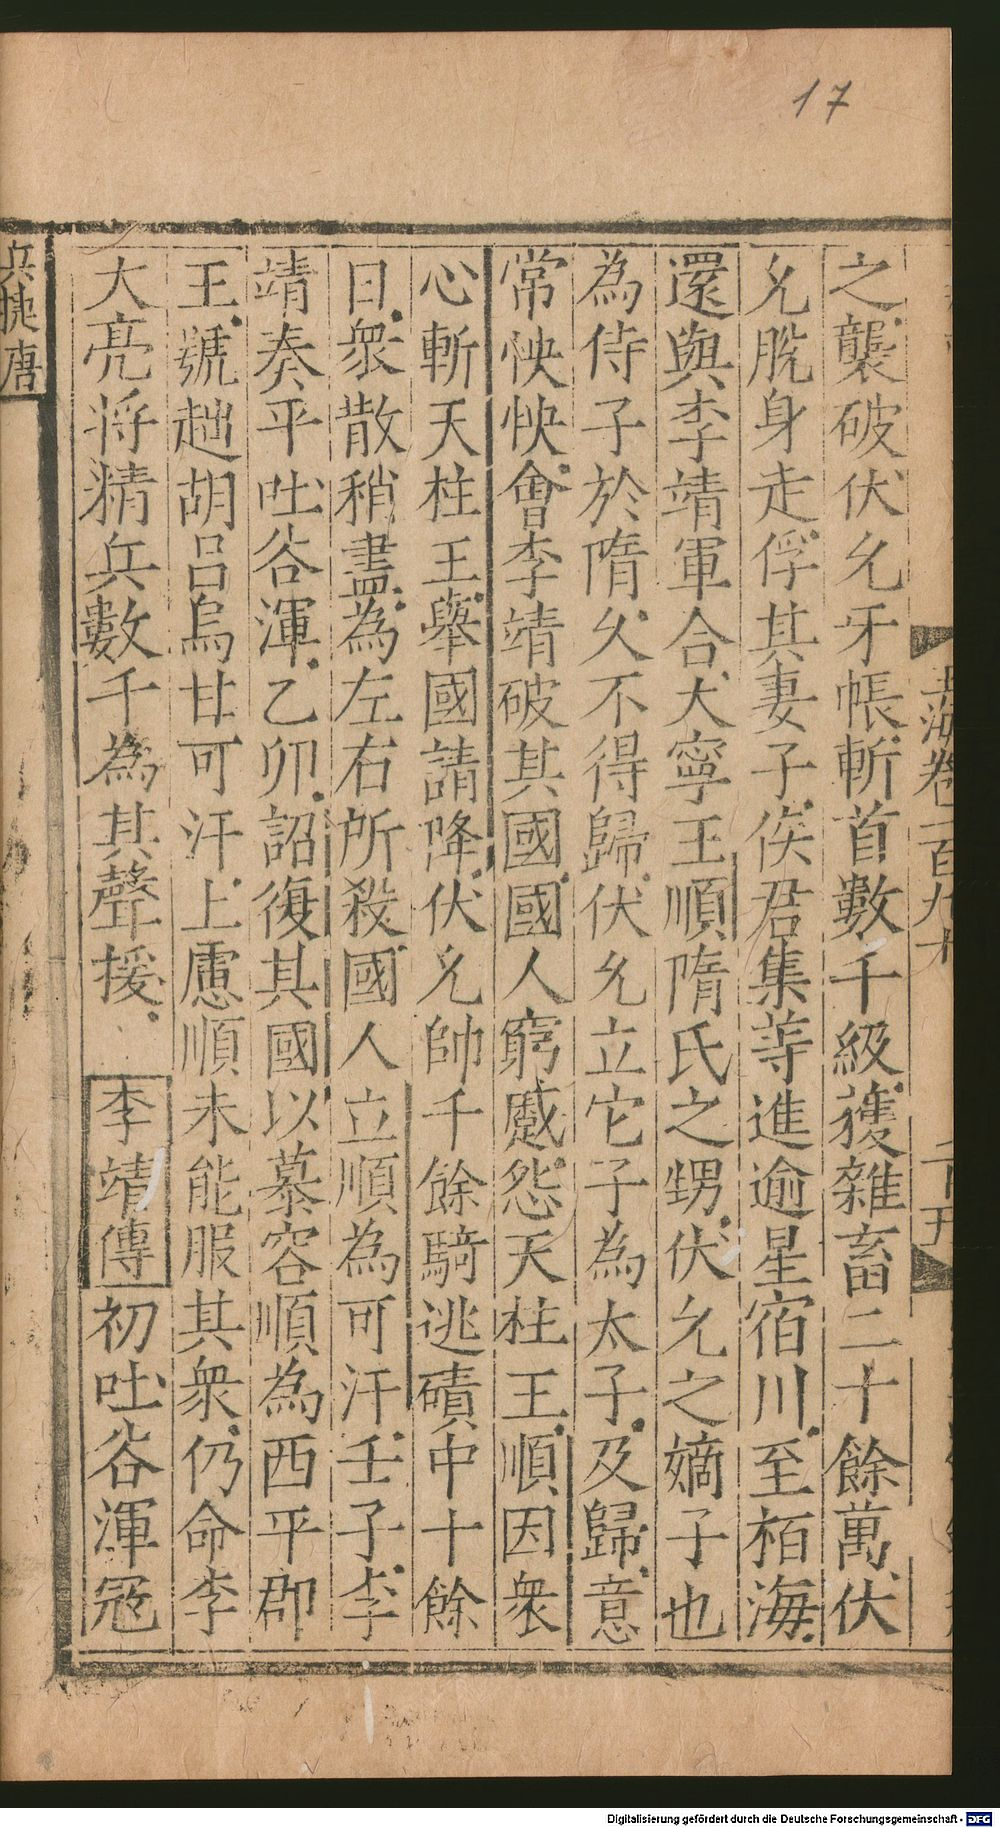 17
玉海卷一百九十
二十五
之襲破伏允牙帳斬首數千級獲雜畜二十餘萬伏
允脫身走俘其妻子侯君集等進逾星宿川至栢海
還與李靖軍合大寧王順隋氏之甥伏允之嫡子也
為侍子於隋乆不得歸伏允立它子為太子及歸意
常怏怏會李靖破其國國人窮慼怨天柱王順因衆
心斬天柱王舉國請降伏允帥千餘騎逃磧中十餘
日衆散稍盡為左右所殺國人立順為可汗壬子李
靖奏平吐谷渾乙卯詔復其國以慕容順為西平郡
王號趉胡呂烏甘可汗上慮順未能服其衆仍命李
大亮将精兵數千為其聲援 李靖傳初吐谷渾冦
兵捷唐
Digitalisierung gefördert durch die Deutsche Forschungsgemeinschaft - DFG